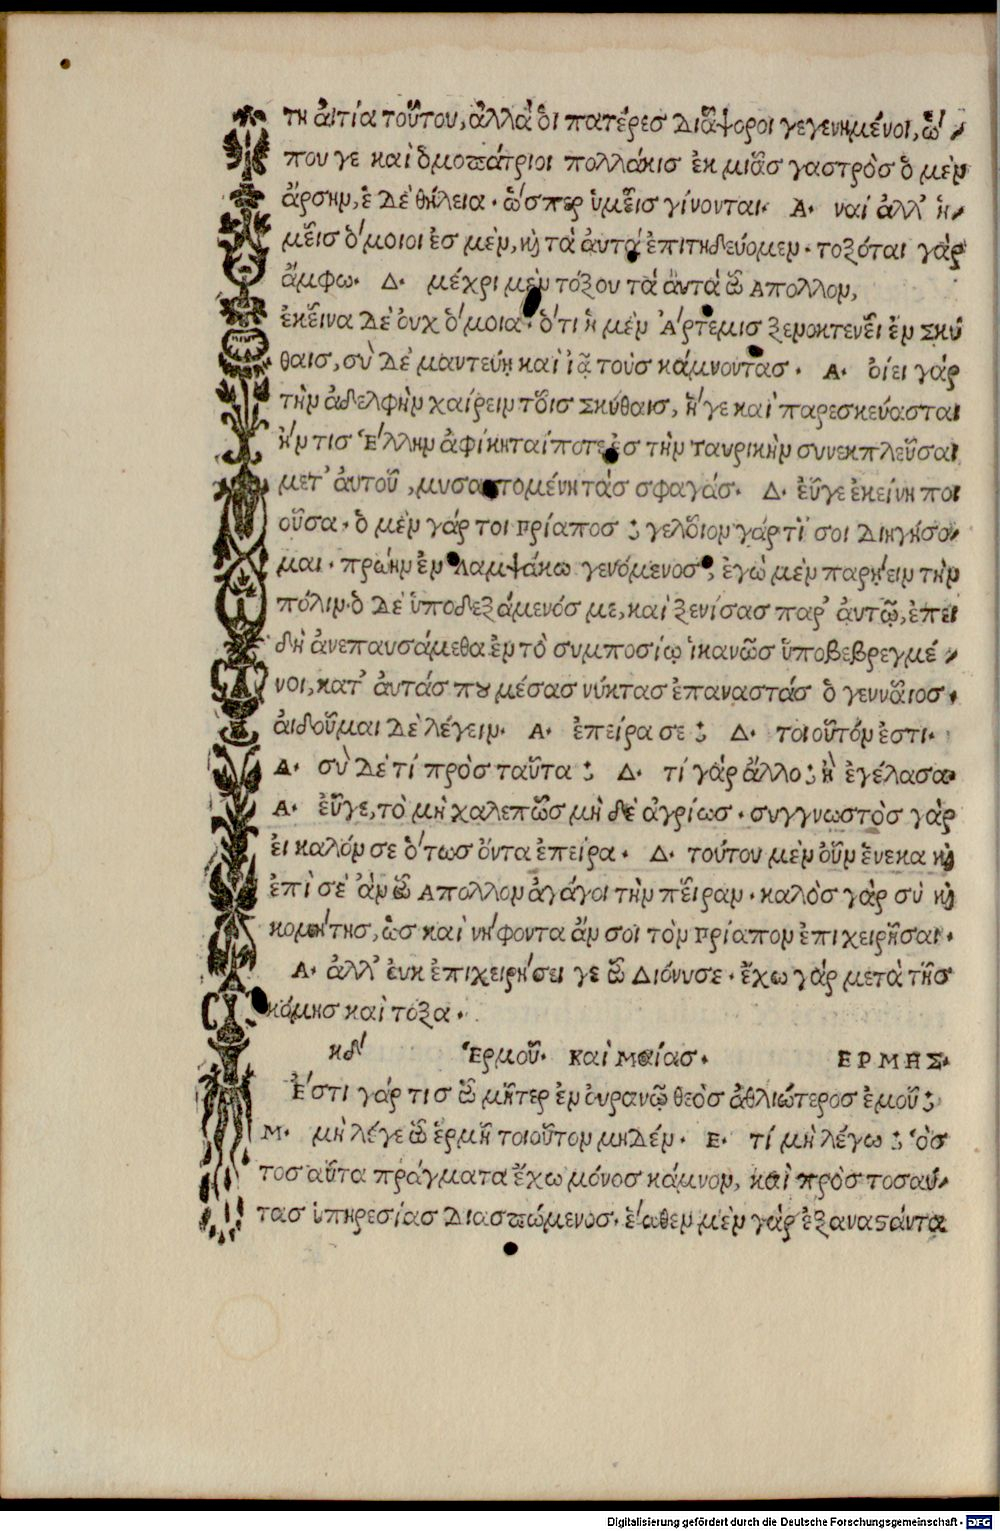 τη ἀιτία τοὔτου, ἀλλὰ ὁι πατέρες διἄφοροι γεγενημένοι, ὥ-
που γε καὶ ὁμοπάτριοι πολλάκις ἐκ μιᾶς γαστρὸς ὁ μὲν
ἄρσην, ἑ δὲ θήλεια· ὥσπερ ὑμεῖς γίνονται. Α· ναί ἀλλ' ἡ-
μεῖς ὅμοιοι ἐς μὲν, καὶ τὰ ἀυτά ἐπιτηδεύομεν· τοξόται γὰρ
ἄμφω· Δ· μέχρι μὲν τόξου τὰ ἀυτὰ ὦ Απολλον,
ἐκεῖνα δὲ ὀυχ ὅμοια· ὅτι ἡ μὲν Ἄρτεμις ξενοκτενεῖ ἐν Σκύ
θαις, σὺ δὲ μαντεύῃ καὶ ἰᾷ τοὺς κάμνοντας· Α· ὀίει γάρ
τὴν ἀδελφὴν χαίρειν τοῖς Σκύθαις, ἥγε καὶ παρεσκεύασται
ἤν τις Ἕλλην ἀφίκηταί ποτε ἐς τὴν ταυρικὴν συνεκπλεῦσαι
μετ' ἀυτοῦ, μυσαττομένη τάς σφαγάς· Δ· ἐῦγε ἐκείνη ποι
οῦσα· ὁ μὲν γάρ τοι πρίαπος ; γελοῖον γάρ τί σοι διηγήσο-
μαι· πρώην ἐν Λαμψάκω γενόμενος, ἐγὼ μὲν παρῄειν τὴν
πόλιν· ὁ δὲ ὑποδεξάμενός με, καὶ ξενίσας παρ' ἀυτῷ, ἐπει
δὴ ἀνεπαυσάμεθα ἐν τὸ συμποσίῳ ἱκανῶς ὑποβεβρεγμέ-
νοι, κατ' ἀυτάς που μέσας νύκτας ἐπαναστάς ὁ γενναῖος·
ἀιδοῦμαι δὲ λέγειν· Α· ἐπείρα σε ; Δ· τοιοῦτόν ἐστι·
Α· σὺ δὲ τί πρὸς ταῦτα ; Δ· τί γάρ ἄλλο ; ἢ ἐγέλασα·
Α· ἐῦγε, τὸ μὴ χαλεπῶς μὴ δὲ ἀγρίως· συγγνωστὸς γάρ
ἐι καλόν σε ὅτως ὄντα ἐπείρα· Δ· τούτου μὲν οὖν ἕνεκα καὶ
ἐπὶ σέ ἂν ὦ Απολλον ἀγάγοι τὴν πεῖραν· καλὸς γὰρ σὺ καὶ
κομήτης, ὡς καὶ νήφοντα ἄν σοι τὸν πρίαπον ἐπιχειρῆσαι·
Α· ἀλλ' ἐυκ ἐπιχειρήσει γε ὦ Διόνυσε· ἔχω γάρ μετὰ τῆς
κόμης καὶ τόξα·
κδ' Ἑρμοῦ· καὶ Μαίας· ΕΡΜΗΣ·
Ἔστι γάρ τις ὦ μῆτερ ἐν ὀυρανῷ θεὸς ἀθλιώτερος ἐμοῦ ;
Μ· μὴ λέγε ὦ ἑρμῆ τοιοῦτον μηδέν· Ε· τί μὴ λέγω ; ὃς
τοσαῦτα πράγματα ἔχω μόνος κάμνον, καὶ πρὸς τοσαύ-
τας ὑπηρεσίας διασπώμενος· ἕωθεν μὲν γάρ ἐξαναστάντα
Digitalisierung gefördert durch die Deutsche Forschungsgemeinschaft - DFG